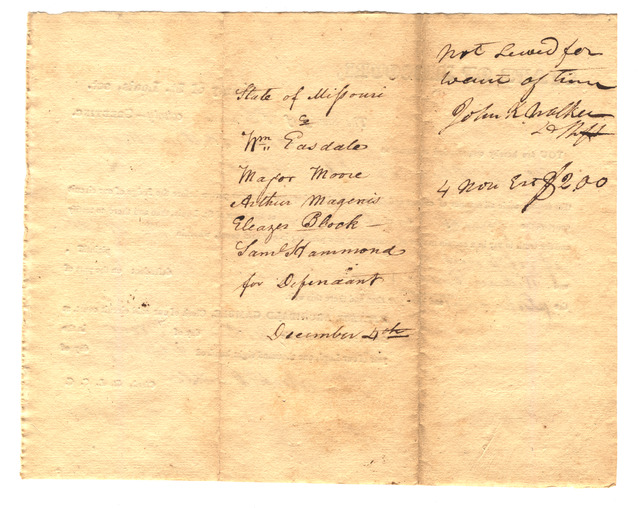 State of Missouri
Wm Easdale
Major Moore
Arthur Magenis
Eleazer Block
Saml Hammond
for Defendant
December 4th
Not Served for
want of time
John K. Walker
4 Non Est $2.00